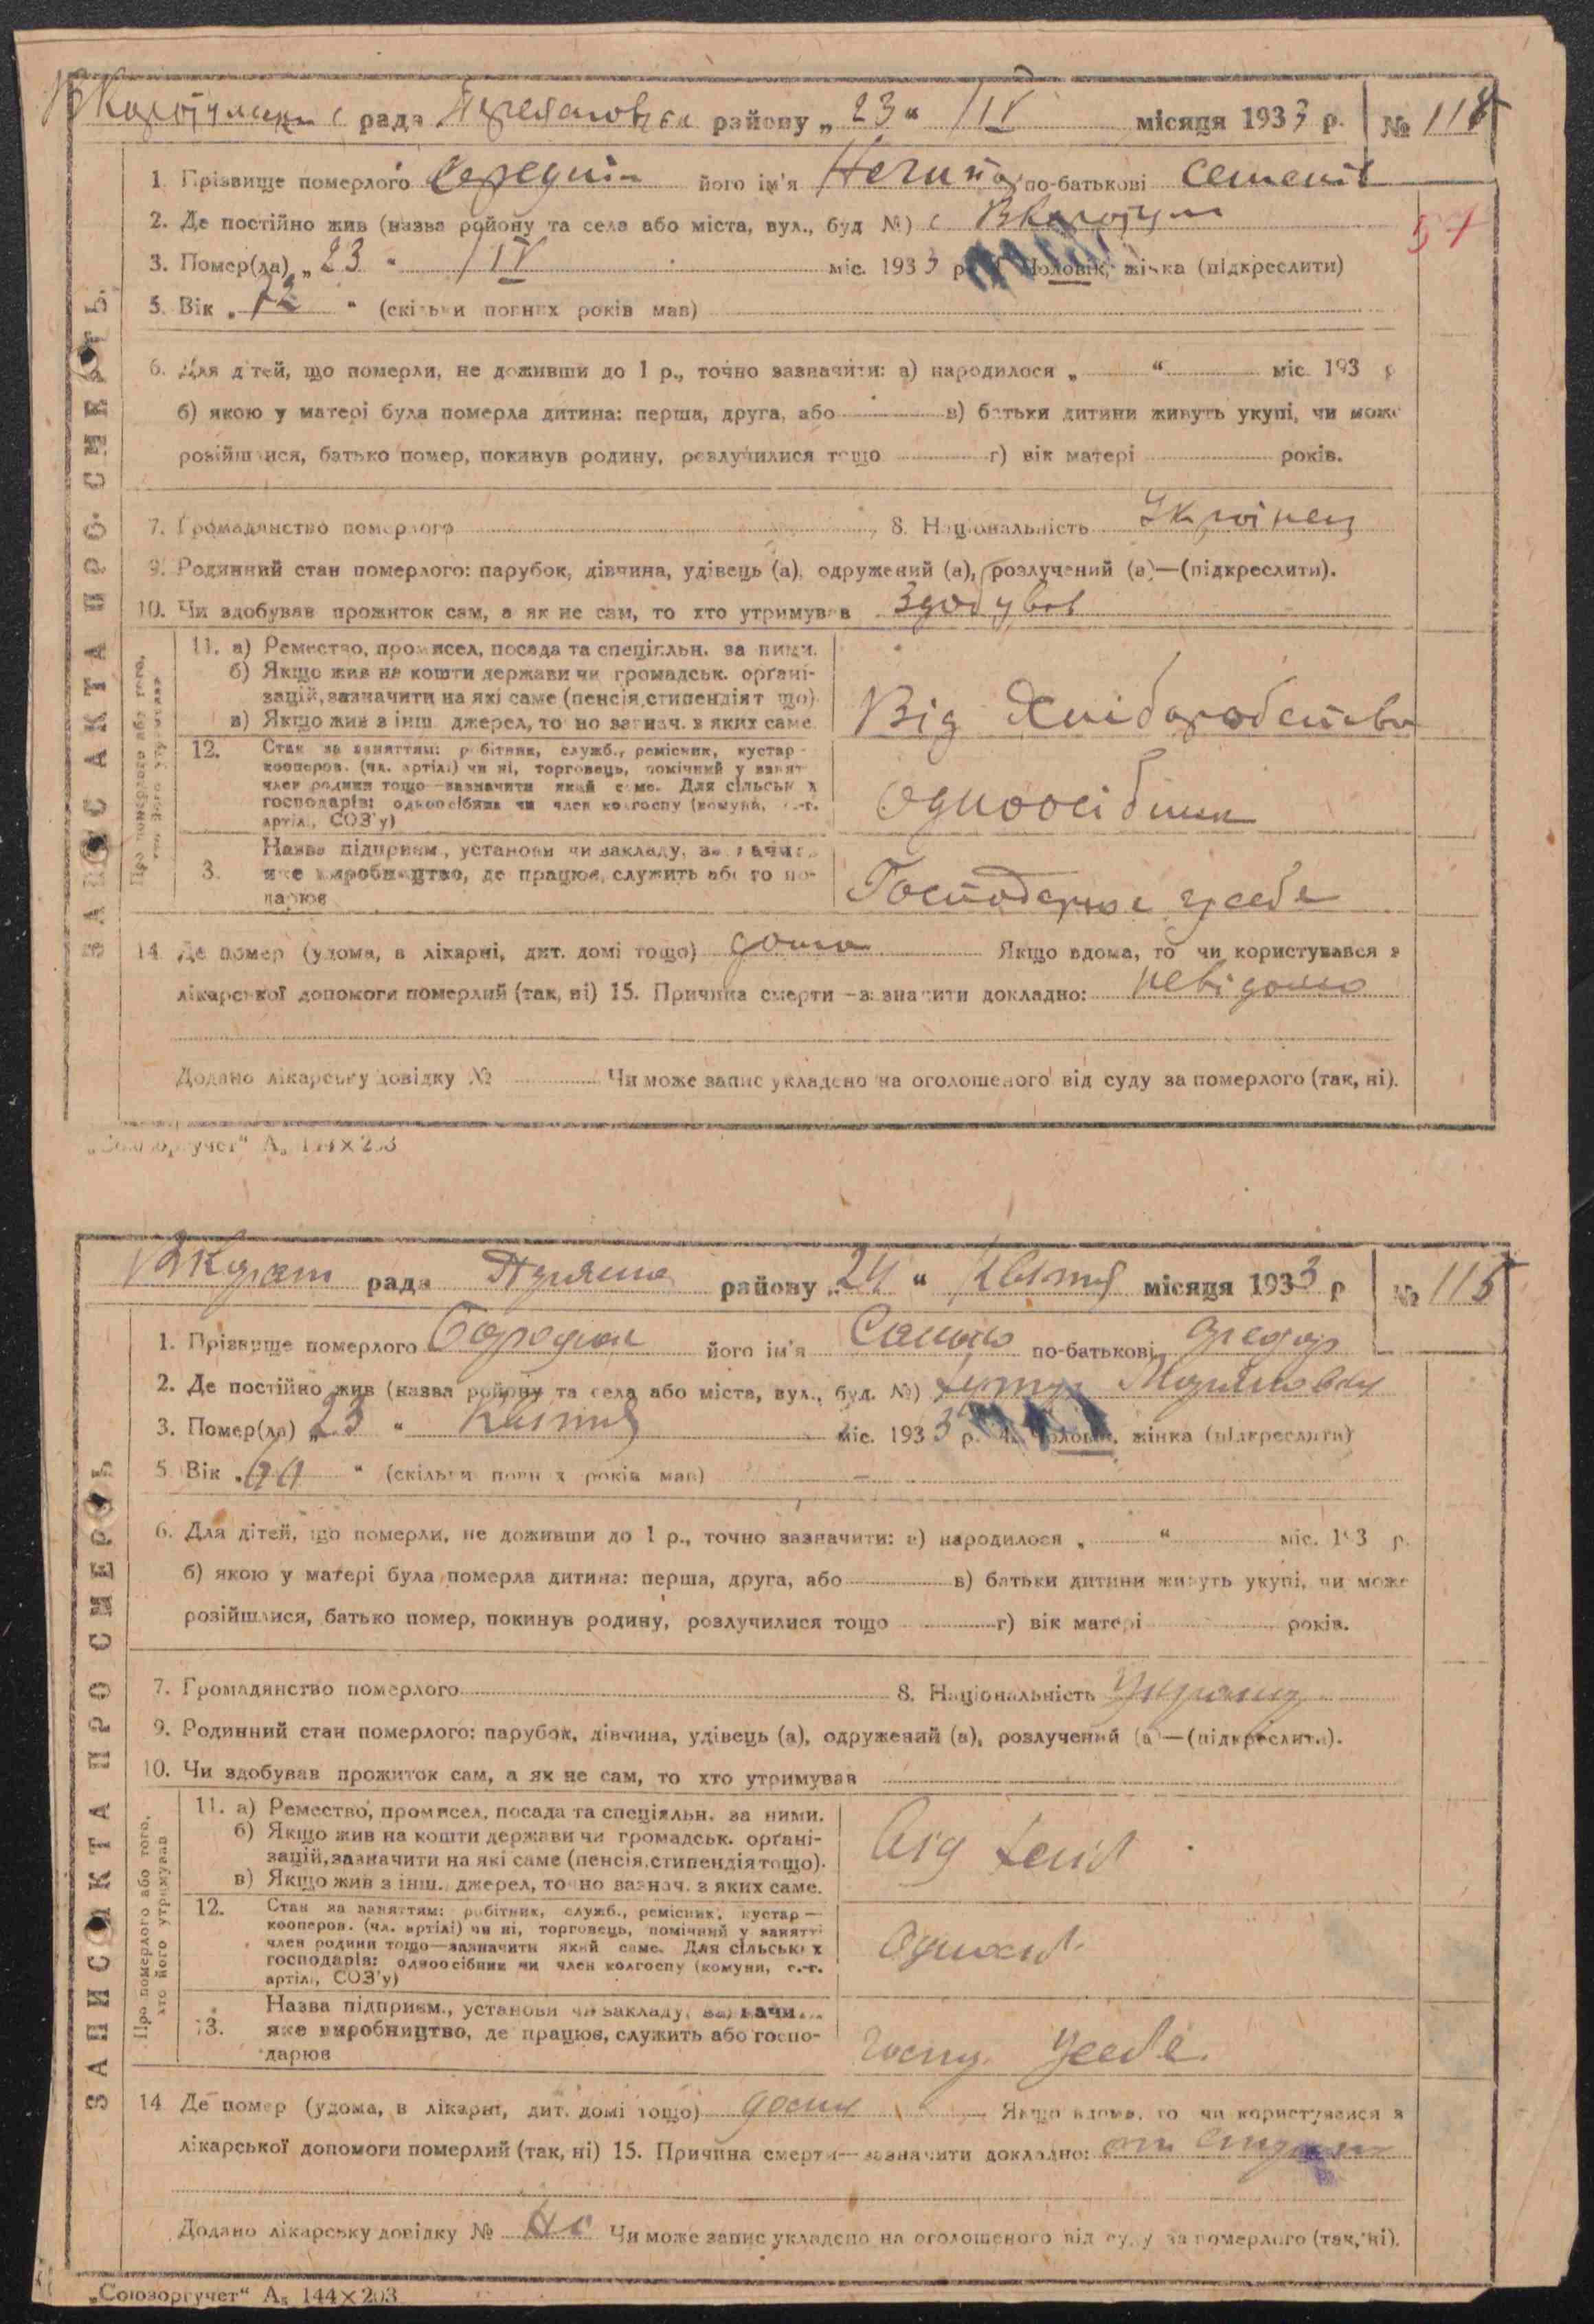 рада району „ 23 “ IV місяця 1933 р. № 118
1. Прізвище померлого Середин його ім'я по-батькові Семенів
54
2. Де постійно жив (назва району та села або міста, вул., буд №) с
3. Помер(ла) „ 23 “ IV міс. 1933 р. 4. Чоловік, жінка (підкреслити)
5. Вік „ 72 “ (скільки повних років мав)
6. Для дітей, що померли, не доживши до 1 р., точно зазначити: а) народилося „ “ міс. 193 р
б) якою у матері була померла дитина: перша, друга, або в) батьки дитини живуть укупі, чи може
розійшлися, батько помер, покинув родину, розлучилися тощо г) вік матері років.
7. Громадянство померлого 8. Національність Українец
9. Родинний стан померлого: парубок, дівчина, удівець (а), одружений (а), розлучений (а)—(підкреслити).
10. Чи здобував прожиток сам, а як не сам, то хто утримував Здобував
ЗАПИС АКТА ПРО СМЕРТЬ
Про померлого або того, хто його утримував
11. а) Ремество, промисел, посада та спеціяльн. за ними.
б) Якщо жив на кошти держави чи громадськ. орґані-
зацій, зазначити на які саме (пенсія, стипендія т що).
в) Якщо жив з інш. джерел, точно вазнач. з яких саме.
Від Хліборобства
12. Стан за заняттям: робітник, служб., ремісник, кустар—
кооперов. (чл. артілі) чи ні, торговець, помічний у занят
член родини тощо—зазначити який саме. Для сільськ х
господарів: одноосібник чи член колгоспу (комуни, с.-г.
артіл., СОЗ'у)
Одноосібник
3. Назва підприєм., установи чи закладу, зазначити
яке виробництво, де працює, служить або го по-
дарює
Господарює у себе
14 Де помер (удома, в лікарні, дит. домі тощо) дома Якщо вдома, то чи користувався з
лікарської допомоги померлий (так, ні) 15. Причина смерти—зазначити докладно: невідомо
Додано лікарську довідку № Чи може запис укладено на оголошеного від суду за померлого (так, ні).
„Союзоргучет“ А₅ 144×203
рада району „ 24 “ Квітня місяця 1933 р № 115
1. Прізвище померлого його ім'я по-батькові
2. Де постійно жив (назва району та села або міста, вул., буд. №) хутор
3. Помер(ла) „ 23 “ Квітня міс. 1933 р. 4. Чоловік, жінка (підкреслити)
5 Вік „ “ (скільки повн х років мав) —
6. Для дітей, що померли, не доживши до 1 р., точно зазначити: а) народилося „ “ міс. 193 р.
б) якою у матері була померла дитина: перша, друга, або в) батьки дитини живуть укупі, чи може
розійшлися, батько помер, покинув родину, розлучилися тощо г) вік матері років.
7. Громадянство померлого 8. Національність
9. Родинний стан померлого: парубок, дівчина, удівець (а), одружений (а), розлучений (а)—(підкреслити).
10. Чи здобував прожиток сам, а як не сам, то хто утримував
ЗАПИС АКТА ПРО СМЕРТЬ
Про померлого або того, хто його утримував
11. а) Ремество, промисел, посада та спеціяльн. за ними.
б) Якщо жив на кошти держави чи громадськ. орґані-
зацій, зазначити на які саме (пенсія, стипендія тощо).
в) Якщо жив з інш. джерел, точно вазнач. з яких саме.
Від хліб
12. Стан за заняттям: робітник, служб., ремісник, кустар—
кооперов. (чл. артілі) чи ні, торговець, помічний у занятті
член родини тощо—зазначити який саме. Для сільськ х
господарів: одноосібник чи член колгоспу (комуни, с.-г.
артіл., СОЗ'у)
Одноосіб
13. Назва підприєм., установи чи закладу, зазначи
яке виробництво, де працює, служить або госпо-
дарює
Госпд. у себе.
14 Де помер (удома, в лікарні, дит. домі тощо) дома Якщо вдома, то чи користувався з
лікарської допомоги померлий (так, ні) 15. Причина смерти—зазначити докладно: от
Додано лікарську довідку № Чи може запис укладено на оголошеного від суду за померлого (так, ні).
„Союзоргучет“ А₅ 144×203